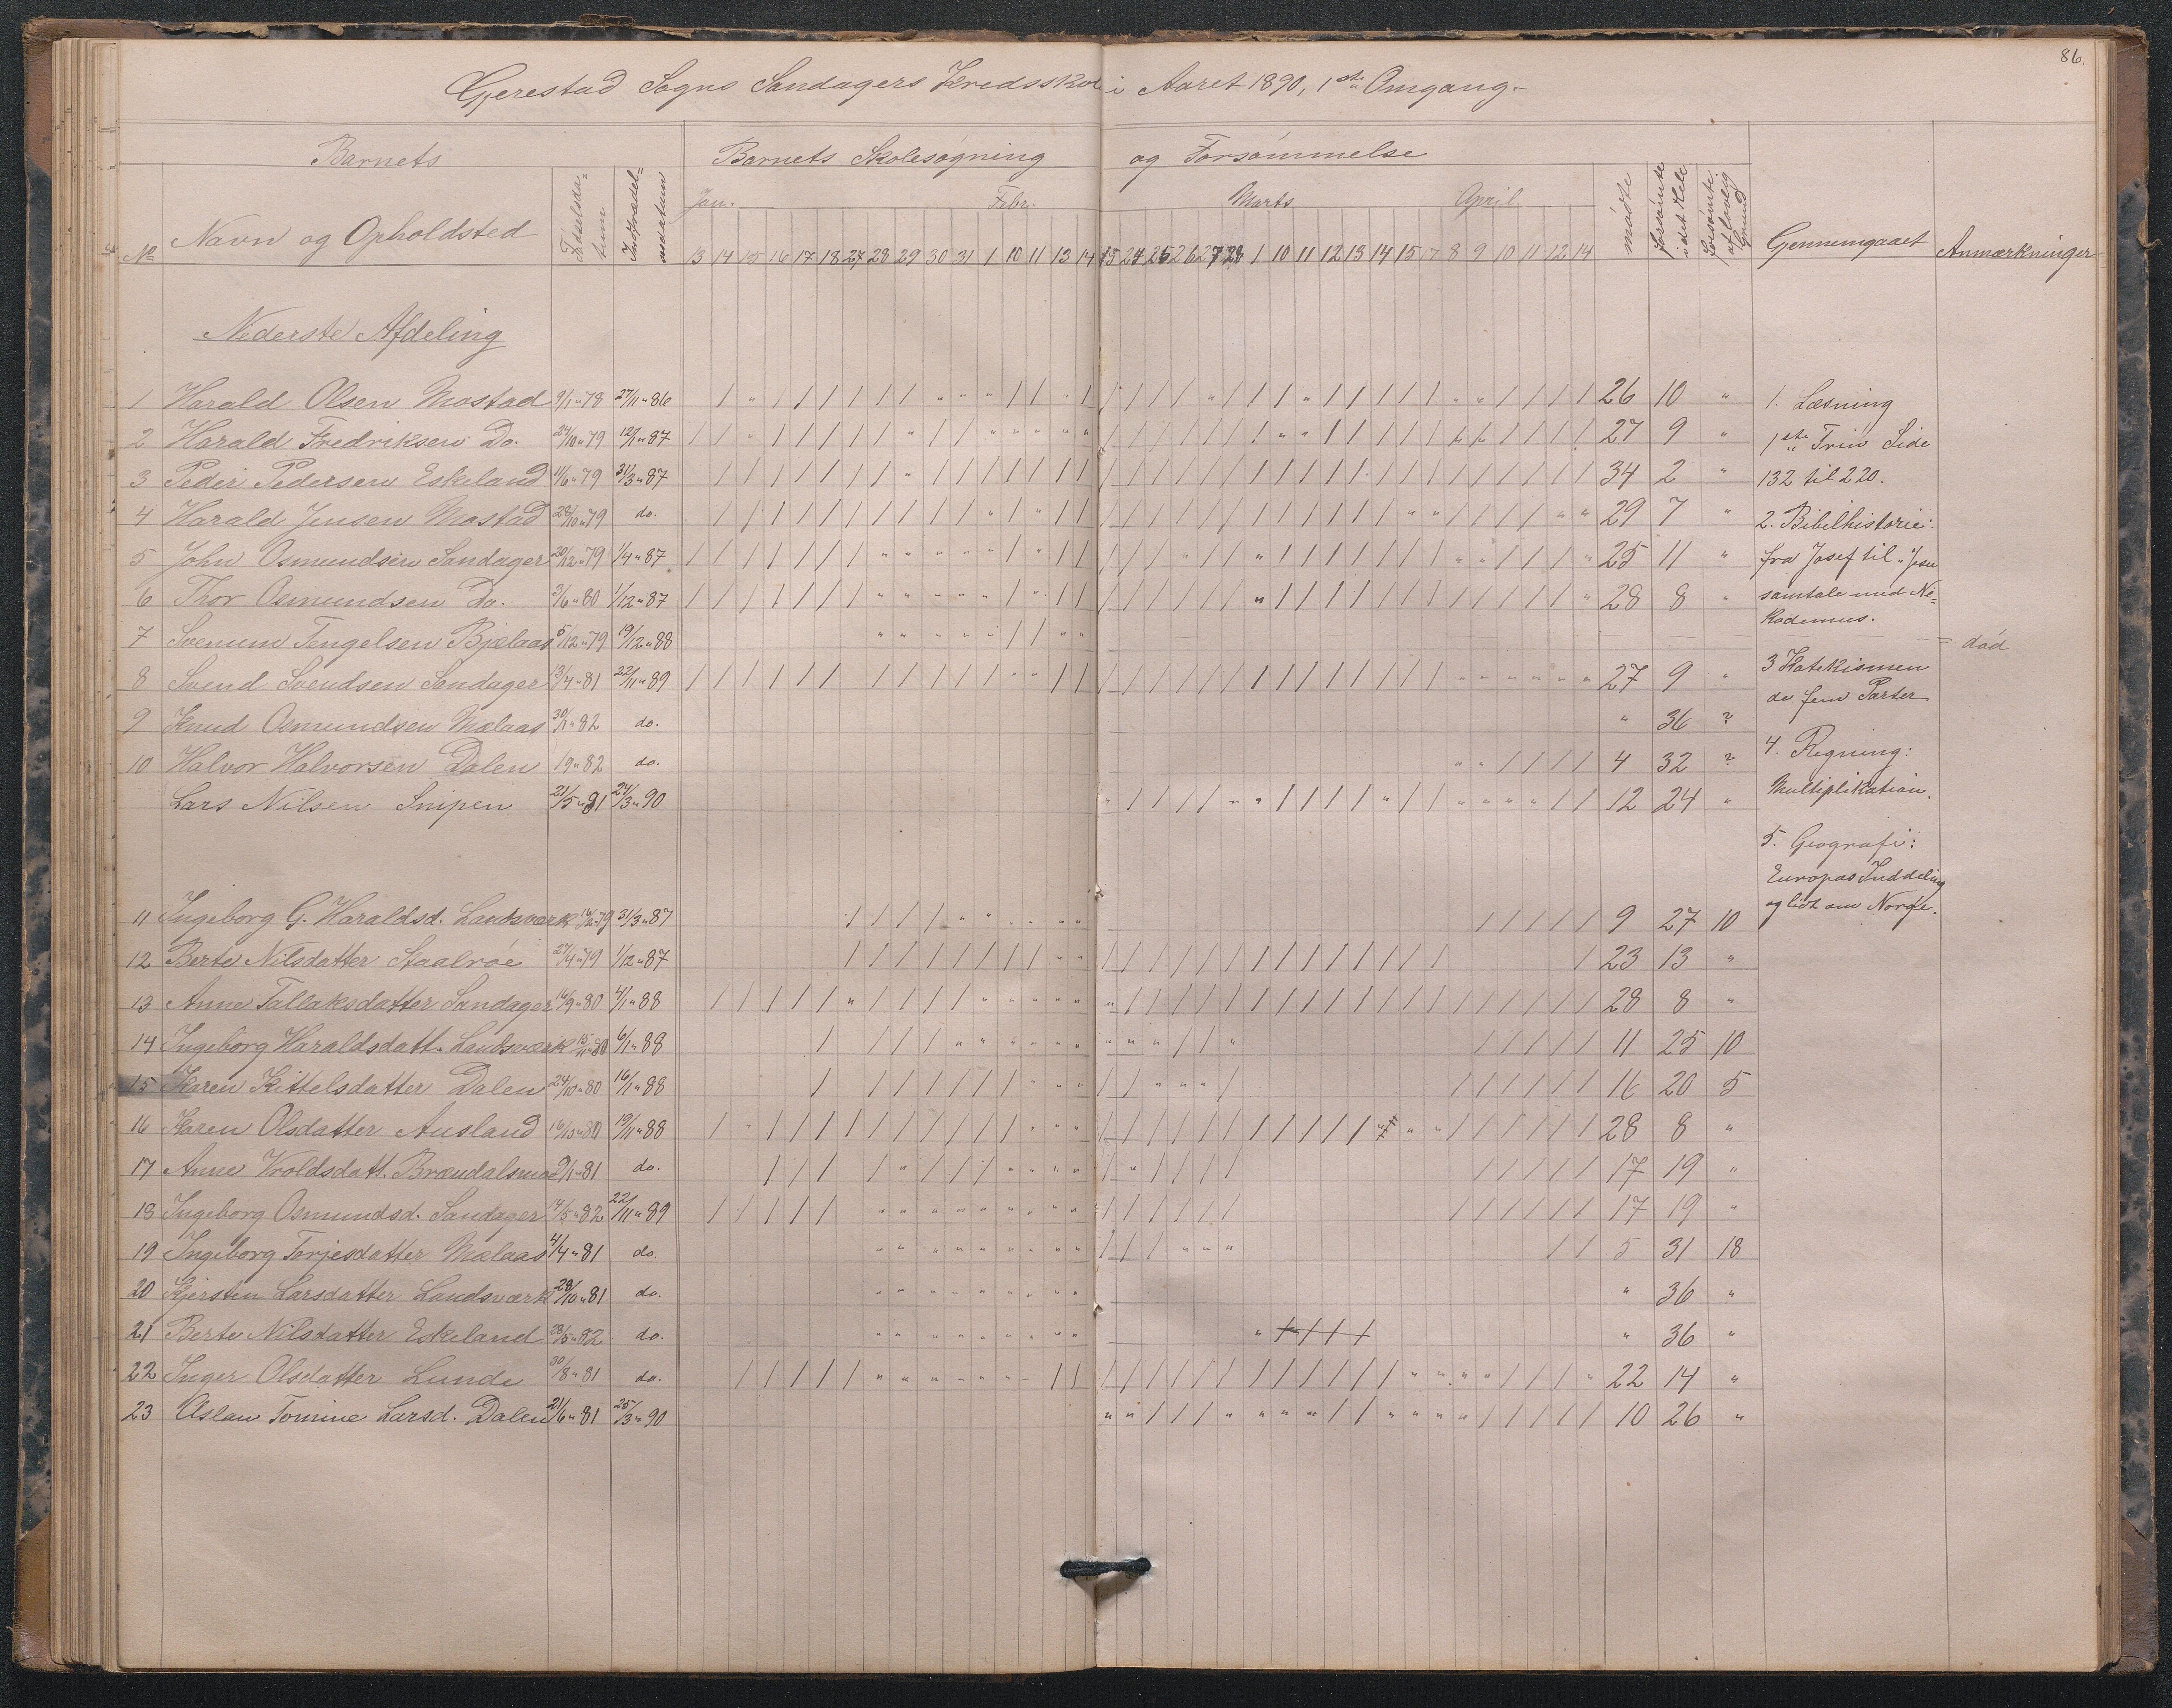 86.
Gjerestad Sogns Sandagers Kredsskole i Aaret 1890, 1ste Omgang
Barnets
Barnets Skolesøgning og Forsømmelse
No
Navn og Opholdsted
Fødselsda=tum
Indtrædel=sesdatum
Jan. Febr. Marts April
13 14 15 16 17 18 27 28 29 30 31 1 10 11 13 14 15 24 25 26 27 28 1 10 11 12 13 14 15 17 8 9 10 11 12 14
mødte
forsømte i det Hele
forsømte af lovlig Grund
Gjennemgaaet
Anmærkninger
Nederste Afdeling
1 Harald Olsen Mostad 9/1 " 78 27/11 " 86 26 10 "
2 Harald Fredriksen Do. 24/10 " 79 12/1 " 87 27 9 "
3 Peder Pedersen Eskeland 11/6 " 79 31/3 " 87 34 2 "
4 Harald Jensen Mostad 28/10 " 79 do. 29 7 "
5 John Osmundsen Sandager 20/12 " 79 1/4 " 87 25 11 "
6 Thor Osmundsen Do. 3/6 " 80 1/12 " 87 28 8 "
7 Svenum Tengelsen Bjelaas 5/12 " 79 19/12 " 88 = død
8 Svend Svendsen Sandager 13/4 " 81 22/11 " 89 27 9 "
9 Knud Osmundsen Mælaas 30/1 " 82 do. " 36 ?
10 Halvor Halvorsen Dalen 1 9 " 82 do. 4 32 ?
Lars Nilsen Snipen 21/5 " 81 24/3 " 90 12 24 "
11 Ingeborg G. Haraldsd. Landsværk 16/12 " 79 31/3 " 87 9 27 10
12 Berte Nilsdatter Staalrøe 27/4 " 79 1/12 " 87 23 13 "
13 Anne Tallaksdatter Sandager 16/9 " 80 4/1 " 88 28 8 "
14 Ingeborg Haraldsdatt. Landsværk 15/11 " 80 6/1 " 88 11 25 10
15 Karen Kittelsdatter Dalen 24/10 " 80 16/1 " 88 16 20 5
16 Karen Olsdatter Ausland 16/13 " 80 19/11 " 88 28 8 "
17 Anne Vroldsdatt. Brændalsmo 9/1 " 81 do. 17 19 "
18 Ingeborg Osmundsd. Sandager 14/5 " 82 22/11 " 89 17 19 "
19 Ingeborg Torjesdatter Mælaas 4/4 " 81 do. 5 31 18
20 Kjersten Larsdatter Landsværk 28/10 " 81 do. " 36 "
21 Berte Nilsdatter Eskeland 28/5 " 82 do. " 36 "
22 Inger Olsdatter Lunde 30/8 " 81 do. 22 14 "
23 Aslau Tomine Larsd. Dalen 21/6 " 81 25/3 " 90 10 26 "
1. Læsning
1ste Trin Side
132 til 220.
2. Bibelhistorie:
fra Josef til "Jesu
samtale med Ni=
kodemus.
3 Katekismen
de fem Parter
4. Regning:
Multiplikation.
5. Geografi:
Europas Inddeling
og lidt om Norge.